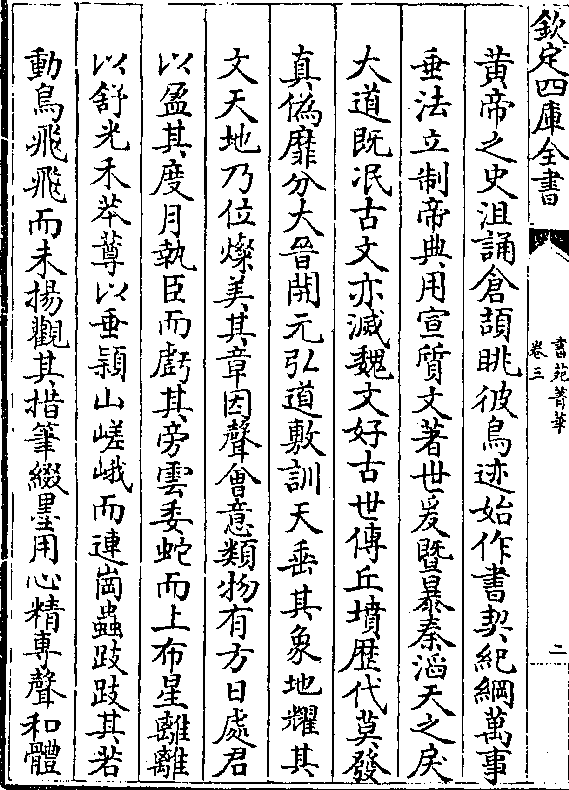 欽定四庫全書
書苑菁華
卷三
二
黄帝之史沮誦倉頡眺彼鳥迹始作書契紀綱萬事
垂法立制帝典用宣質文著世爰暨暴秦滔天之戾
大道既泯古文亦滅魏文好古世傳丘墳歴代莫發
真偽靡分大晉開元弘道敷訓天垂其象地耀其
文天地乃位燦美其章因聲會意類物有方日處君
以盈其度月執臣而虧其旁雲委蛇而上布星離離
以舒光禾苯䔿以垂頴山嵯峨而連崗蟲跂跂其若
動鳥飛飛而未揚觀其措筆綴墨用心精專聲和體